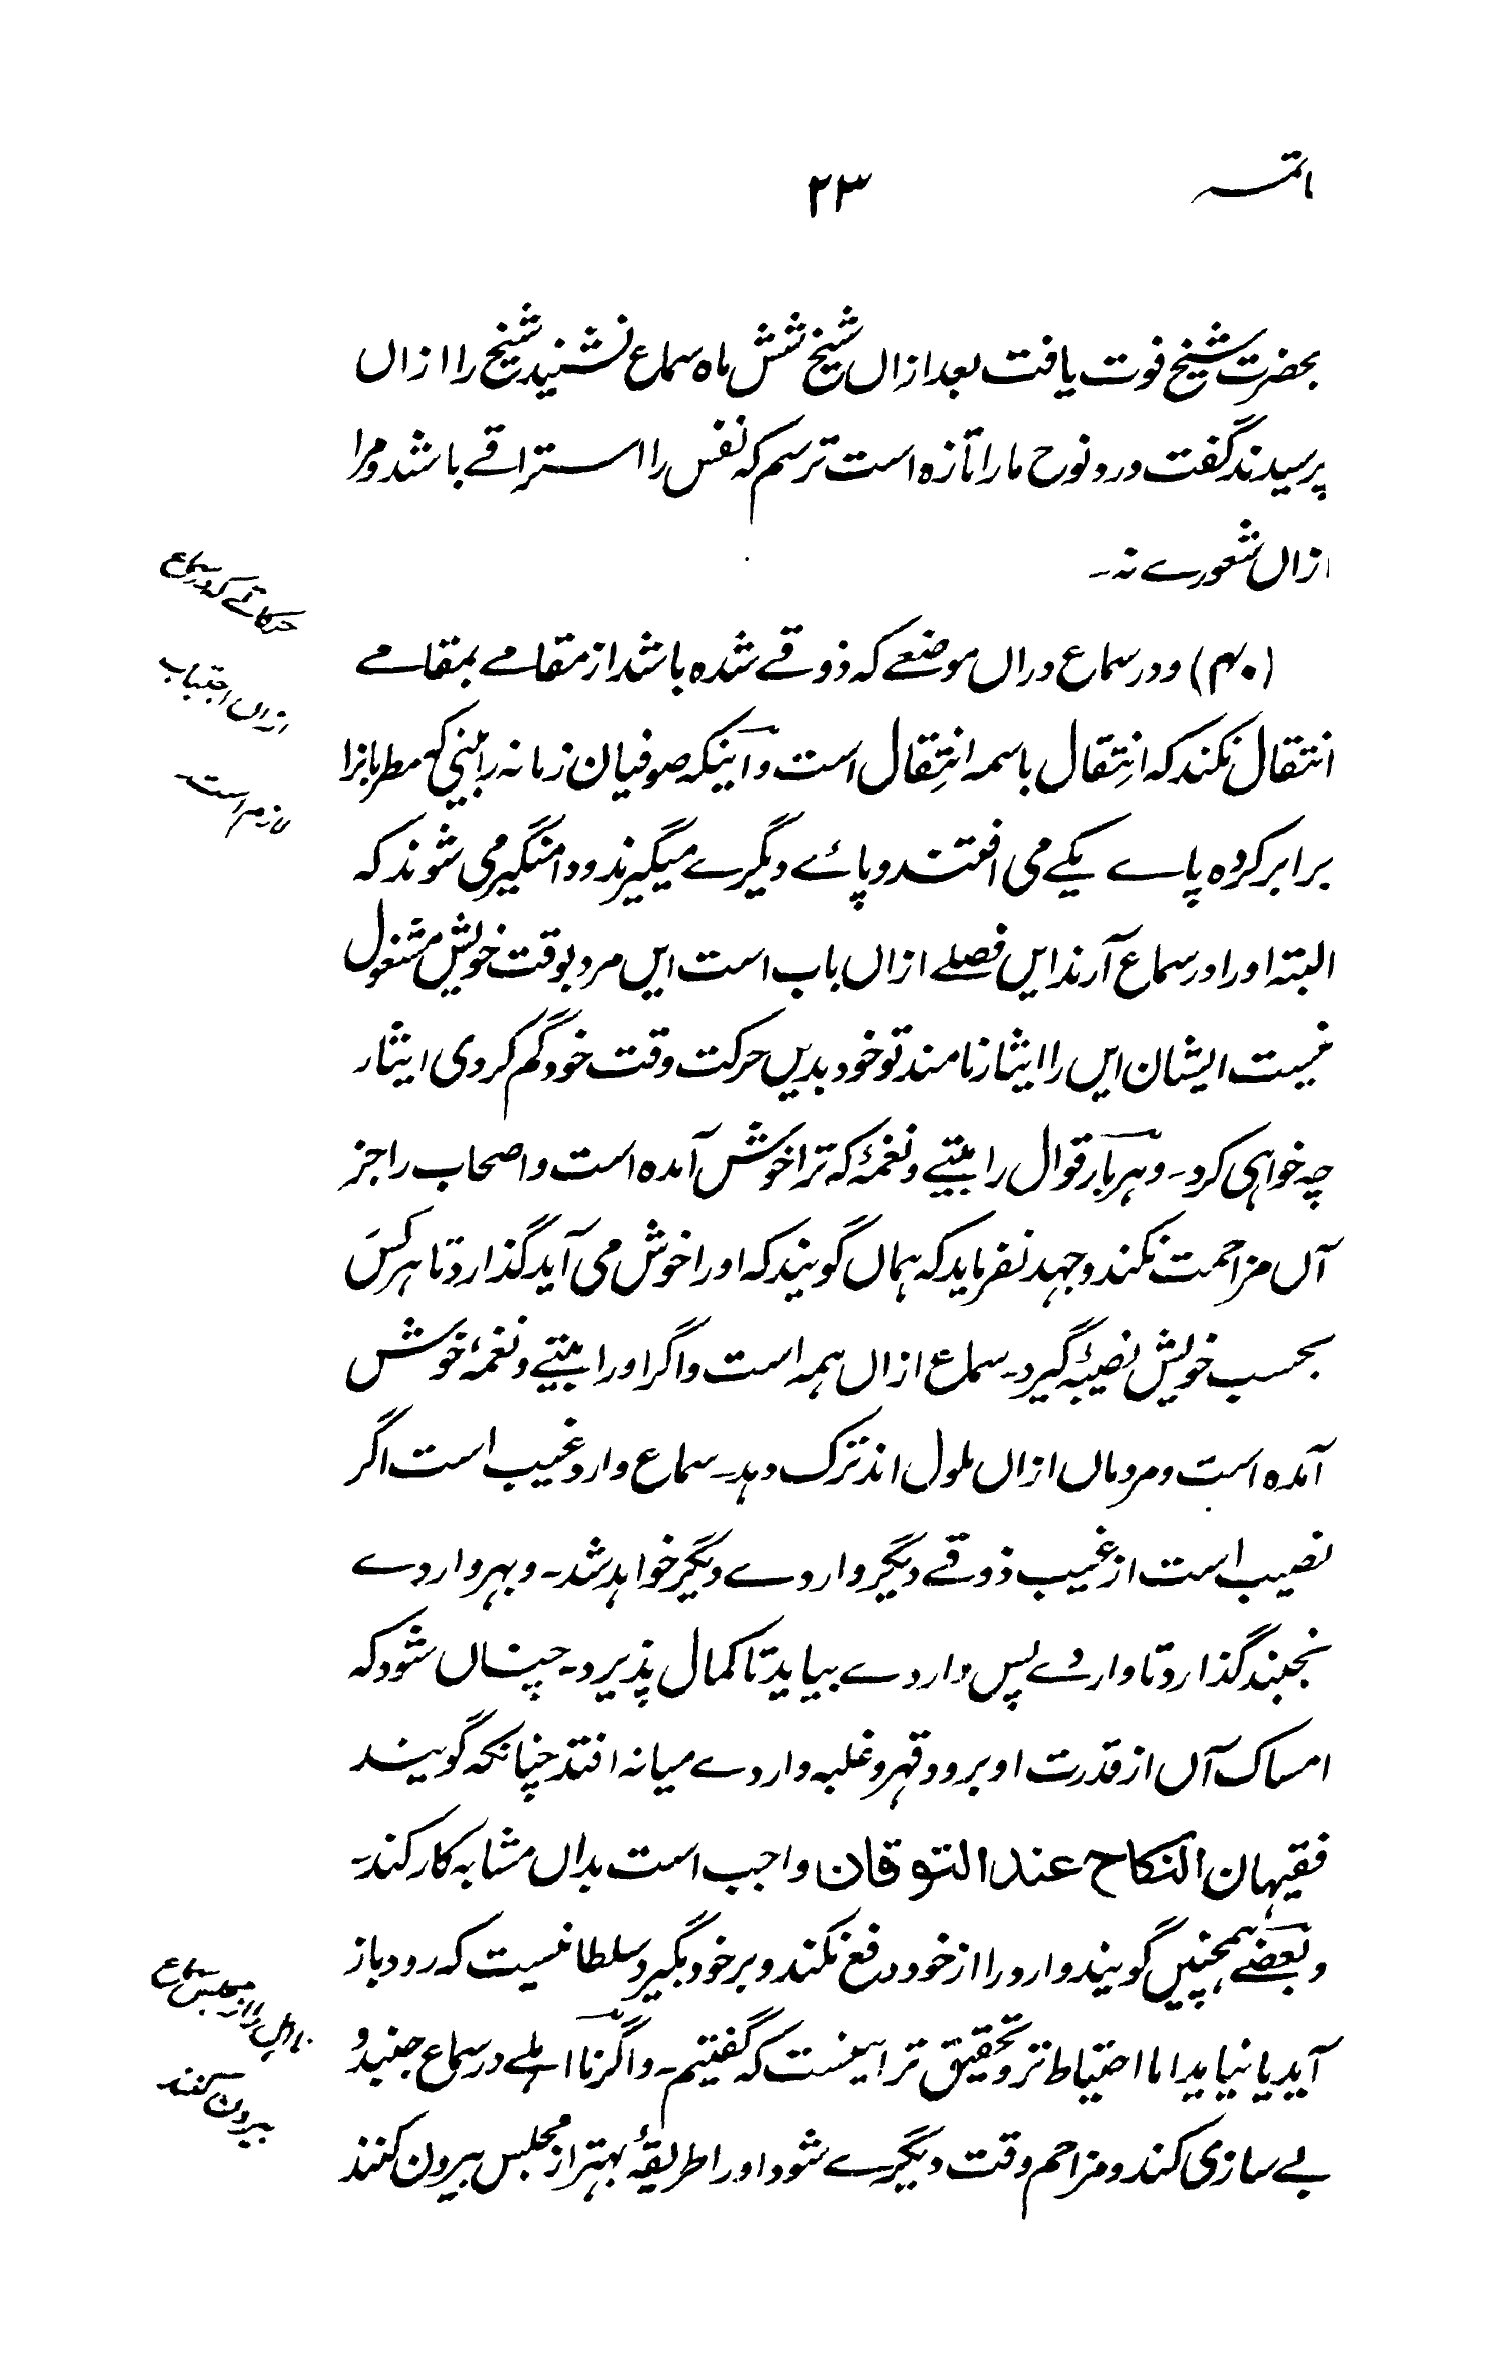 خاتمہ
۲۳
بحضرت شیخ فوت یافت بعد ازاں شیخ شش ماہ سماع نشنید شیخ را ازاں
پرسیدند گفت درد نوح ما را تازہ است ترسم کہ نفس را استراقے باشد و مرا
ازاں شعورے نہ۔
حرکاتے کہ در سماع
ازاں اجتناب
لازم است
(۴۰) و در سماع دراں موضعے کہ ذوقے شدہ باشد از مقامے بمقامے
انتقال نکند کہ انتقال باسمہ انتقال است و آنیکہ صوفیان زمانہ را بینی کہ مطربانرا
برابر کردہ پاے یکے می افتند و پائے دیگرے میگیرند و دامنگیر می شوند کہ
البتہ او را در سماع آرند ایں فصلے ازاں باب است ایں مرد بوقت خویش مشغول
نیست ایشان ایں را ایثار نامند تو خود بدیں حرکت وقت خود گم کردی ایثار
چہ خواہی کرد۔ و ہر بار قوال را بیتے و نغمۂ کہ ترا خوش آمدہ است و اصحاب را جز
آں مزاحمت نکند و جہد نفرماید کہ ہماں گویند کہ او را خوش می آید گذارد تا ہر کس
بحسب خویش نصیبۂ گیرد۔ سماع ازاں ہمہ است و اگر او را بیتے و نغمۂ خوش
آمدہ است و مردماں ازاں ملول اند ترک دہد۔ سماع وارد غیب است اگر
نصیب است از غیب ذوقے دیگر و اردے دیگر خواہد شد۔ و بہر واردے
نجنبند گذارد تا واردے پس واردے بیاید تا کمال پذیرد۔ چناں شود کہ
امساک آں از قدرت او برود و قہر و غلبہ واردے میانہ افتد چنانکہ گویند
فقیہان النکاح عند التوقان واجب است بداں مشابہ کار کند۔
و بعضے ہمچنیں گویند وارد را از خود دفع نکند و بر خود بگیرد سلطانیست کہ رود باز
آید یا نیاید اما احتیاط تر و تحقیق تر اینست کہ گفتیم۔ و اگر نا اہلے در سماع جنبد و
بے سازی کند و مزاحم وقت دیگرے شود او را طریقۂ بہتر از مجلس بیرون کنند
نا اہل را از مجلس سماع
بیرون کنند